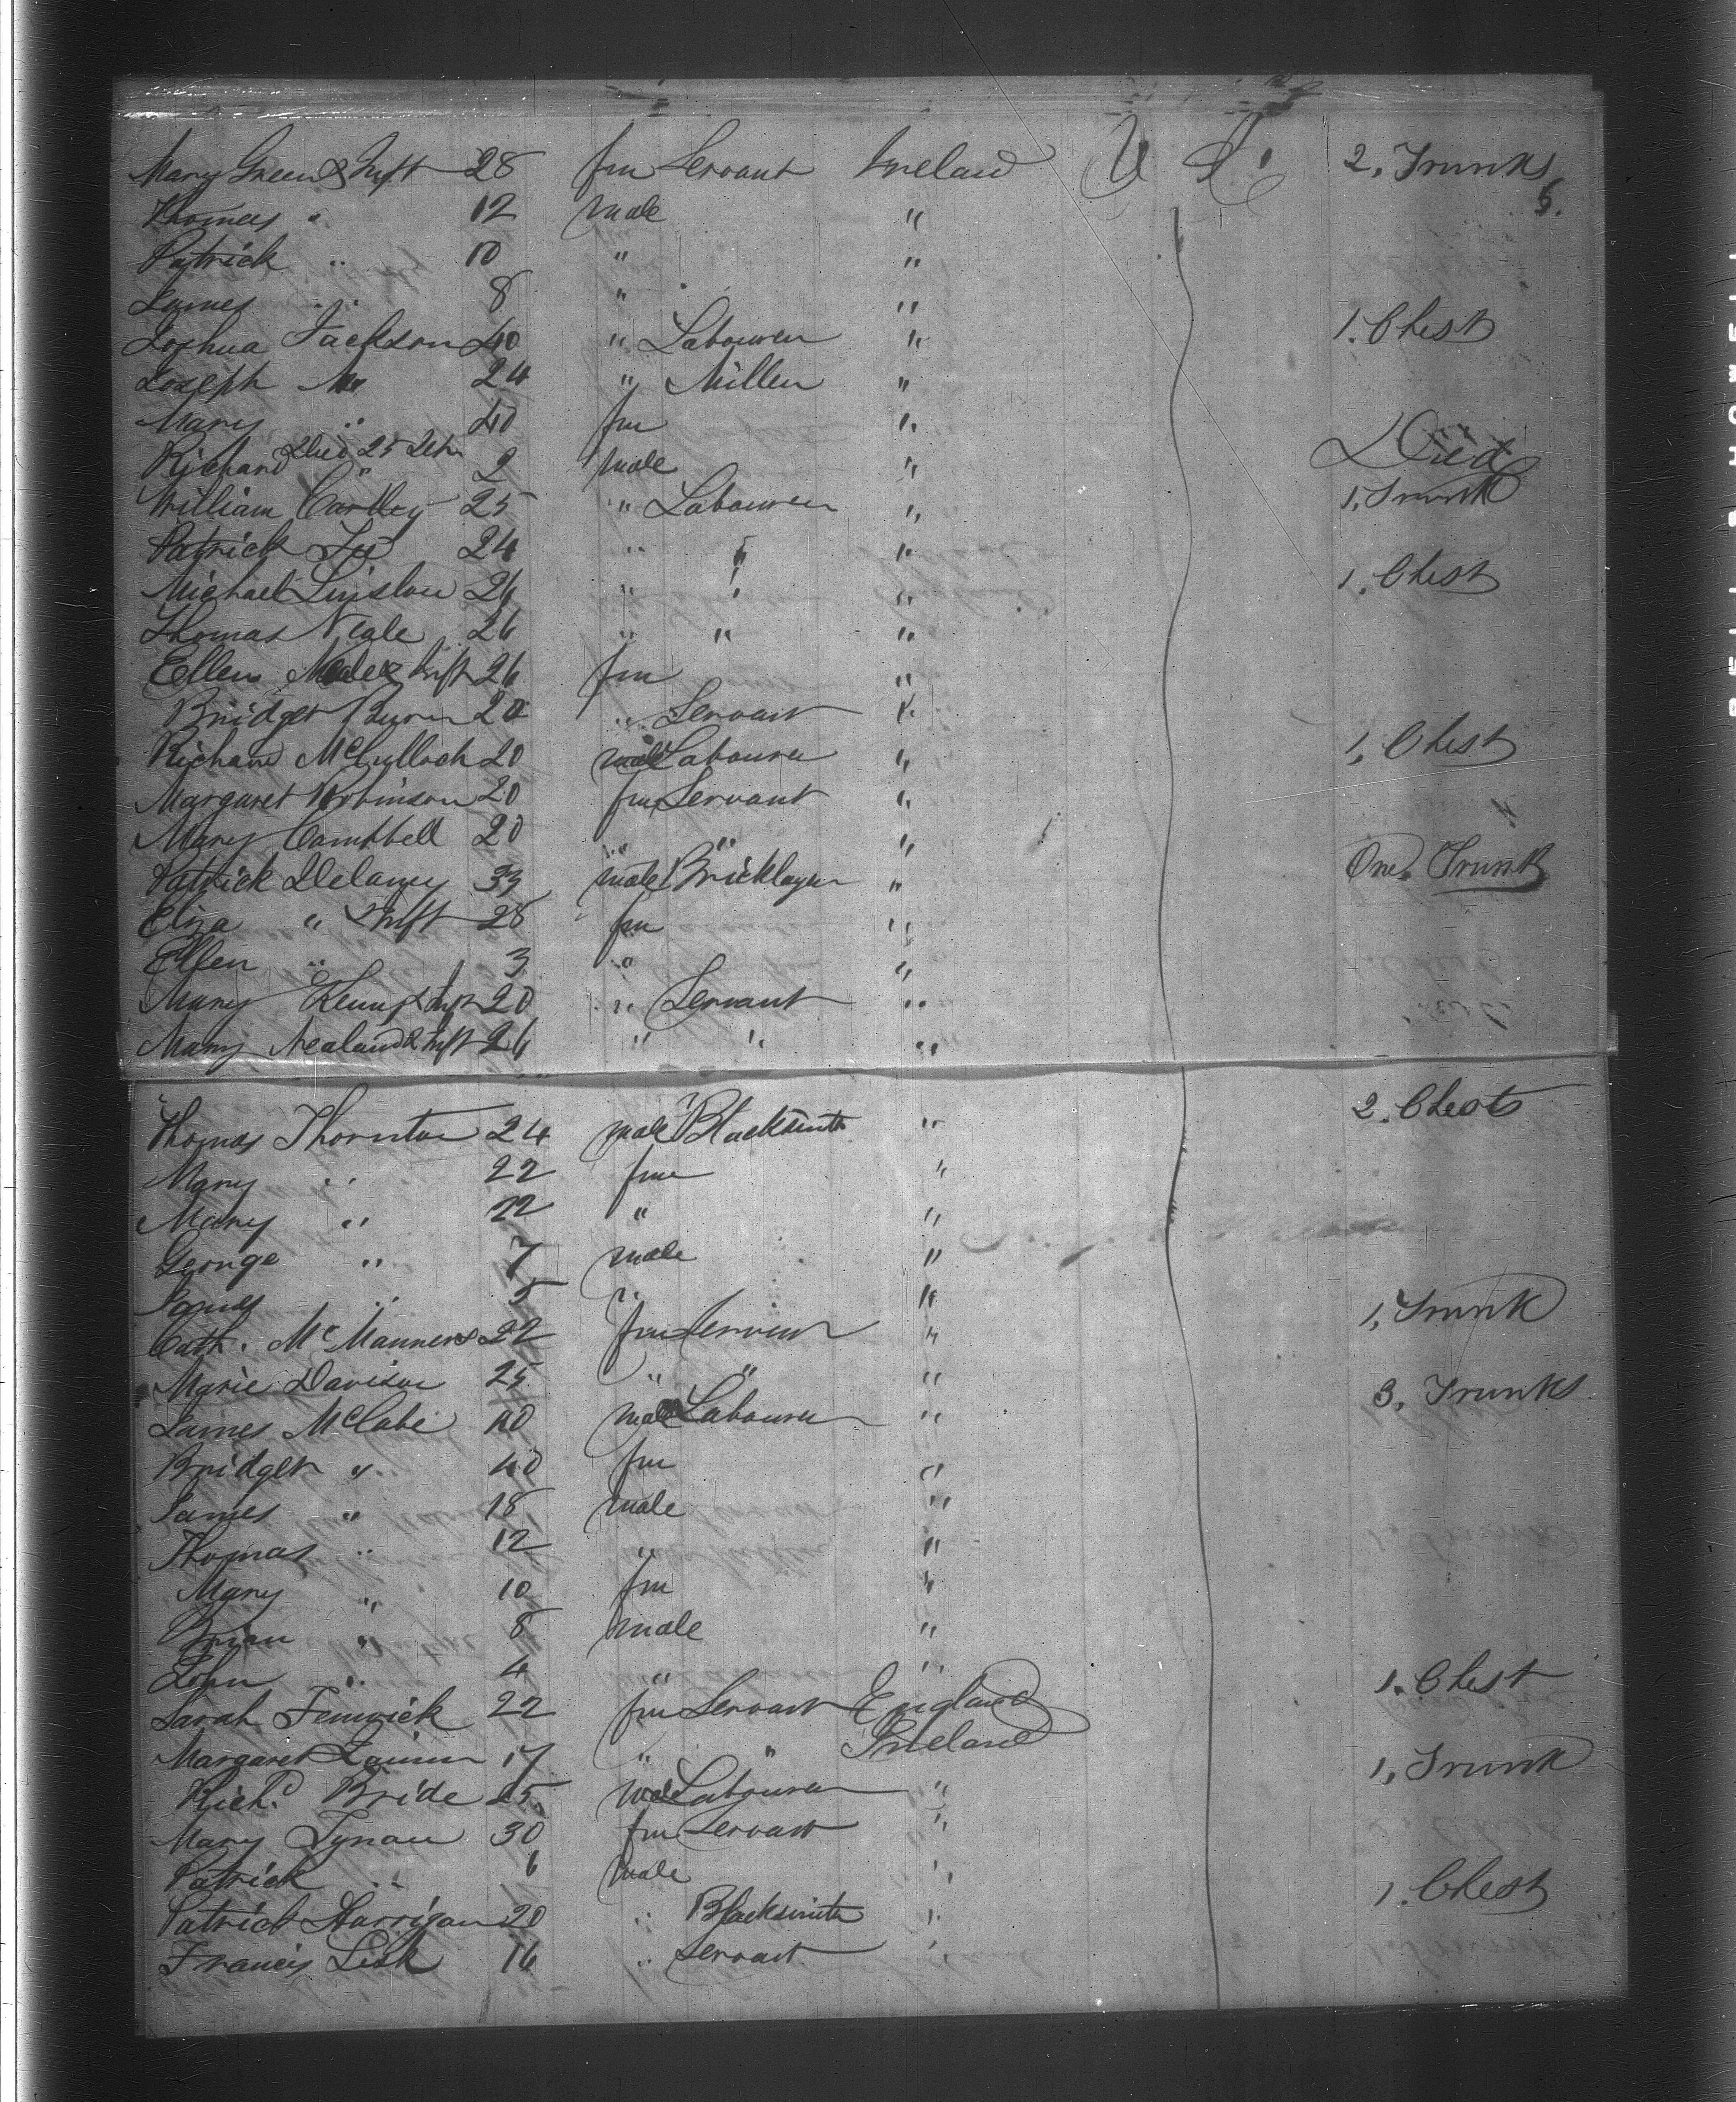 Mary Green & Inft 28 fm Servant Ireland U S. 2. Trunks
Thomas " 12 male " 6.
Patrick " 10 " "
James " 8 " "
Joshua Jackson 40 " Labourer " 1. Chest
Joseph " 24 " Miller "
Mary " 40 fm "
Richard Died 25 " 2 male " Died
William Cartley 25 " Labourer " 1, Trunk
Patrick 24 " " "
Michael 26 " " " 1. Chest
Thomas Neale 26 " " "
Ellen Neale & Inft 26 fm "
Bridget Burn 20 " Servant "
Richard McCulloch 20 male Labourer " 1, Chest
Margaret Robinson 20 fm Servant "
Mary Campbell 20 " " "
Patrick Delaney 33 male Bricklayer " One. Trunk
Eliza " & Inft 28 fm "
Ellen " 3 " "
Mary & Inft 20 " Servant "
Mary Nealand & Inft 26 " " "
Thomas Thornton 24 male Blacksmith " 2. Chests
Mary " 22 fm "
Mary " 22 " "
George " 7 male "
James " 5 " "
Cath. McManners 22 fm Servant " 1, Trunk
Marie Davison 25 " " "
James McCabe 40 male Labourer " 3, Trunks
Bridget " 40 fm "
James " 18 male "
Thomas " 12 " "
Mary " 10 fm "
Brian " 8 male "
John " 4 " "
Sarah Fenwick 22 fm Servant England 1. Chest
Margaret 17 " " Ireland
Richd. Bride 25 male Labourer " 1, Trunk
Mary Tynan 30 fm Servant "
Patrick " 6 male "
Patrick Harrigan 20 " Blacksmith " 1. Chest
Francis Lisk 16 " Servant "